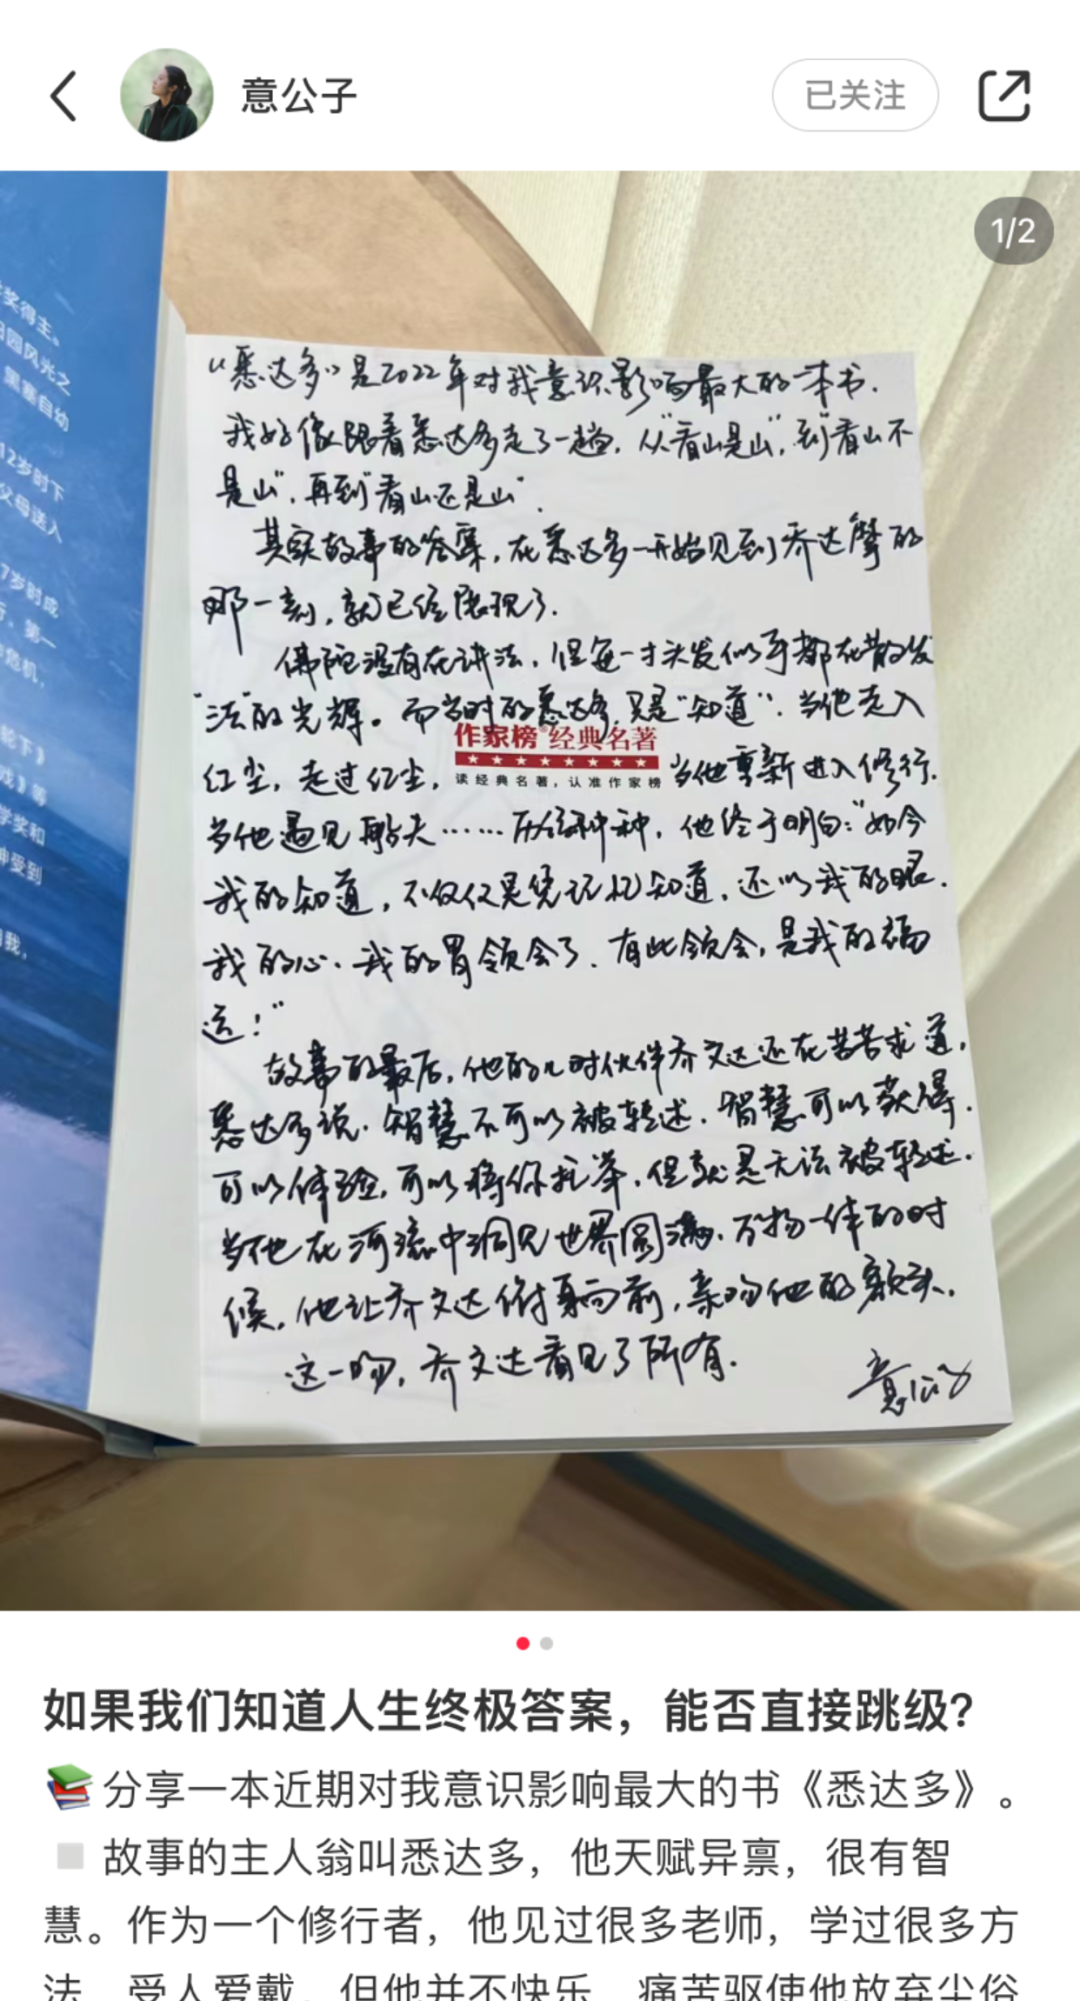 意公子
已关注
1/2
奖得主。
田园风光之
黑塞自幼
12岁时下
父母送入
7岁时成
行，第一
危机，
轮下》
戏》等
学奖和
神受到
“悉达多”是2022年对我意识影响最大的一本书.
我好像跟着悉达多走了一趟，从“看山是山”，到“看山不
是山”，再到“看山还是山”.
其实故事的答案，在悉达多一开始见到乔达摩的
那一刻，就已经展现了.
佛陀没有在讲法，但每一寸头发似乎都在散发
“法”的光辉。而当时的悉达多，只是“知道”.当他走入
红尘，走过红尘，
当他重新进入修行.
作家榜®经典名著
读经典名著，认准作家榜
当他遇见船夫……历经种种，他终于明白：“如今
我的知道，不仅仅是凭记忆知道，还以我的眼.
我的心、我的胃领会了.有此领会，是我的福
运！”
故事的最后，他的儿时伙伴乔文达还在苦苦求道，
悉达多说.智慧不可以被转述.智慧可以获得.
可以体验，可以将你托举，但就是无法被转述.
当他在河流中洞见世界圆满.万物一体的时
候，他让乔文达俯身向前，亲吻他的额头.
这一吻，乔文达看见了所有.
意公子
如果我们知道人生终极答案，能否直接跳级？
分享一本近期对我意识影响最大的书《悉达多》。
故事的主人翁叫悉达多，他天赋异禀，很有智
慧。作为一个修行者，他见过很多老师，学过很多方
法，受人爱戴，但他并不快乐，痛苦驱使他放弃尘俗